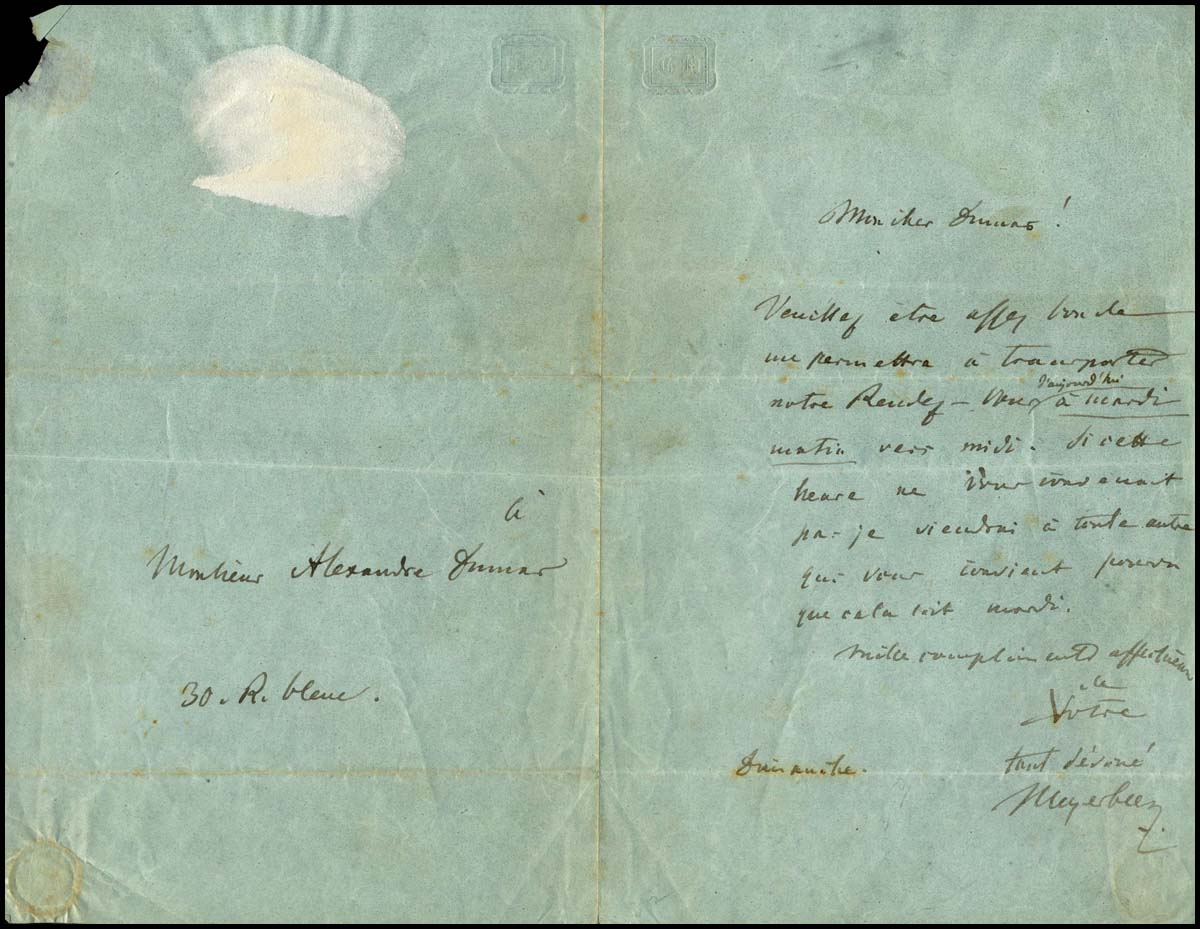 à
Monsieur Alexandre Dumas
30. R. bleue.
Mon cher Dumas!
Veuillez être assez bon de
me permettre à transporter
notre Rendez-Vous d'aujourd'hui à mardi
matin vers midi. Si cette
heure ne vous convenait
pas je viendrai à toute autre
qui vous convient pourvu
que cela soit mardi.
Mille compliments affectueux
de
Votre
tout dévoué
Meyerbeer
Dimanche.